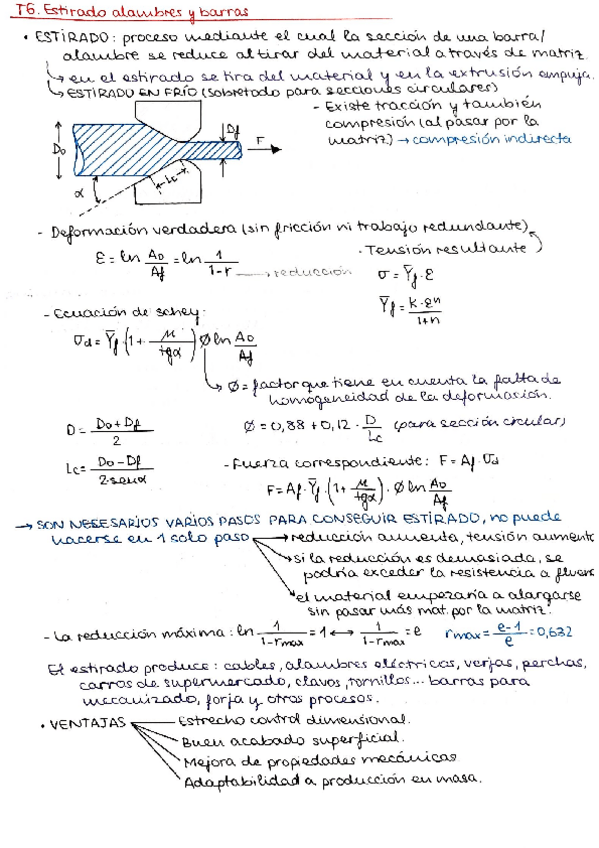 T6. Estirado alambres y barras
• ESTIRADO: proceso mediante el cual la sección de una barra/
alambre se reduce al tirar del material a través de matriz.
↳ en el estirado se tira del material y en la extrusión empuja.
↳ ESTIRADO EN FRÍO (sobretodo para secciones circulares)
- Existe tracción y también
compresión (al pasar por la
matriz) → compresión indirecta
Do
Df
F
Lc
α
- Deformación verdadera (sin fricción ni trabajo redundante)
· Tensión resultante
ε = ln Ao/Af = ln 1/(1-r) → reducción
σ = Ȳf · ε
Ȳf = K·εⁿ/(1+n)
- Ecuación de schey:
σd = Ȳf (1 + μ/tgα) Ø ln Ao/Af
↳ Ø = factor que tiene en cuenta la falta de
homogeneidad de la deformación.
D = (Do + Df)/2
Ø = 0,88 + 0,12 · D/Lc (para sección circular)
Lc = (Do - Df)/(2·senα)
- Fuerza correspondiente: F = Af · σd
F = Af · Ȳf · (1 + μ/tgα) · Ø ln Ao/Af
→ SON NESESARIOS VARIOS PASOS PARA CONSEGUIR ESTIRADO, no puede
hacerse en 1 solo paso → reducción aumenta, tensión aumenta
→ si la reducción es demasiada, se
podría exceder la resistencia a fluenc
el material empezaría a alargarse
sin pasar más mat. por la matriz.
- La reducción máxima: ln 1/(1-rmax) = 1 ↔ 1/(1-rmax) = e rmax = (e-1)/e = 0,632
El estirado produce: cables, alambres eléctricos, verjas, perchas,
carros de supermercado, clavos, tornillos... barras para
mecanizado, forja y otros procesos.
• VENTAJAS → Estrecho control dimensional.
Buen acabado superficial.
Mejora de propiedades mecánicas
Adaptabilidad a producción en masa.